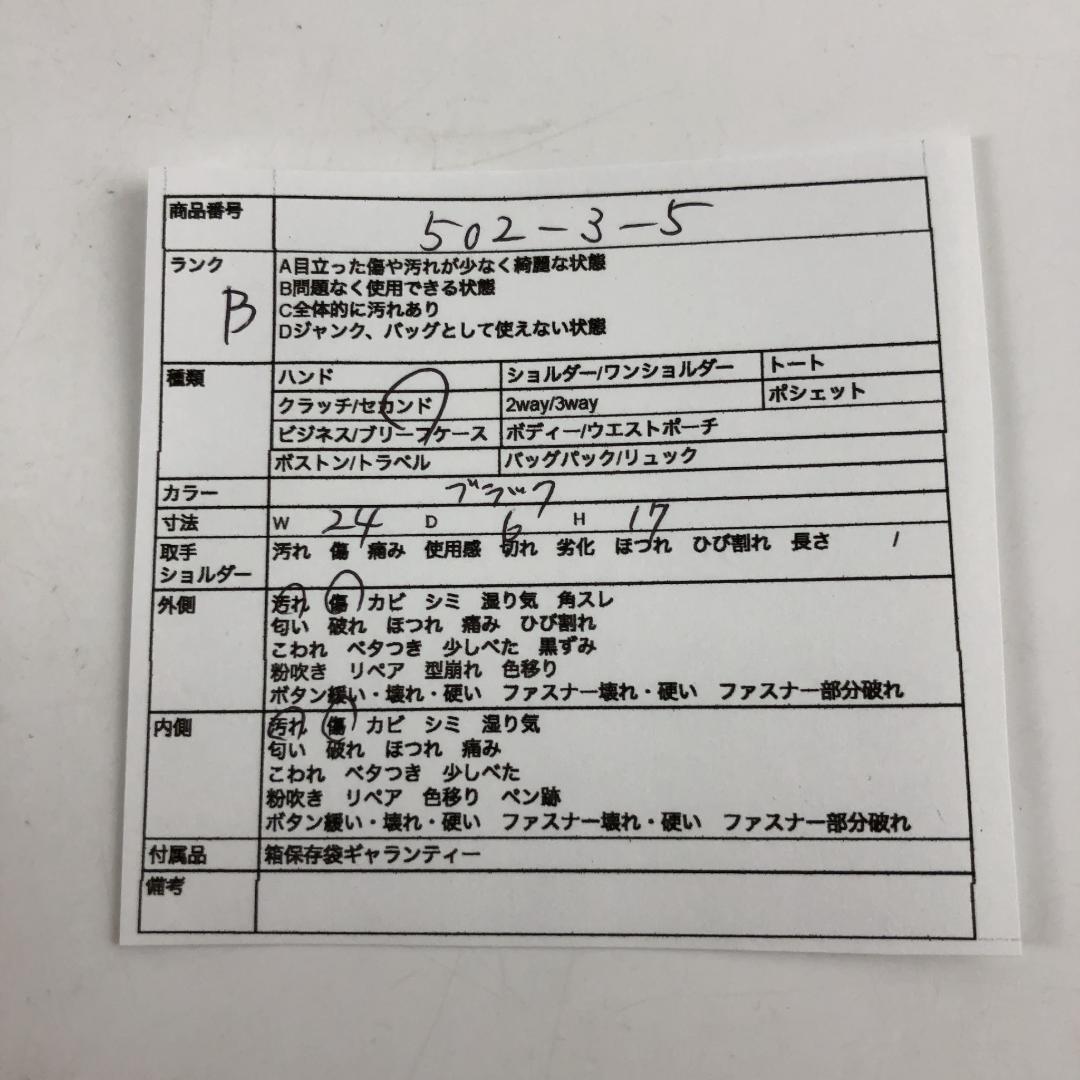 商品番号 502-3-5
ランク B
A目立った傷や汚れが少なく綺麗な状態
B問題なく使用できる状態
C全体的に汚れあり
Dジャンク、バッグとして使えない状態
種類 ハンド ショルダー/ワンショルダー トート
クラッチ/セカンド 2way/3way ポシェット
ビジネス/ブリーフケース ボディー/ウエストポーチ
ボストン/トラベル バッグパック/リュック
カラー ブラック
寸法 W 24 D 6 H 17
取手 汚れ 傷 痛み 使用感 切れ 劣化 ほつれ ひび割れ 長さ /
ショルダー
外側 汚れ 傷 カビ シミ 湿り気 角スレ
匂い 破れ ほつれ 痛み ひび割れ
こわれ ベタつき 少しべた 黒ずみ
粉吹き リペア 型崩れ 色移り
ボタン緩い・壊れ・硬い ファスナー壊れ・硬い ファスナー部分破れ
内側 汚れ 傷 カビ シミ 湿り気
匂い 破れ ほつれ 痛み
こわれ ベタつき 少しべた
粉吹き リペア 色移り ペン跡
ボタン緩い・壊れ・硬い ファスナー壊れ・硬い ファスナー部分破れ
付属品 箱保存袋ギャランティー
備考